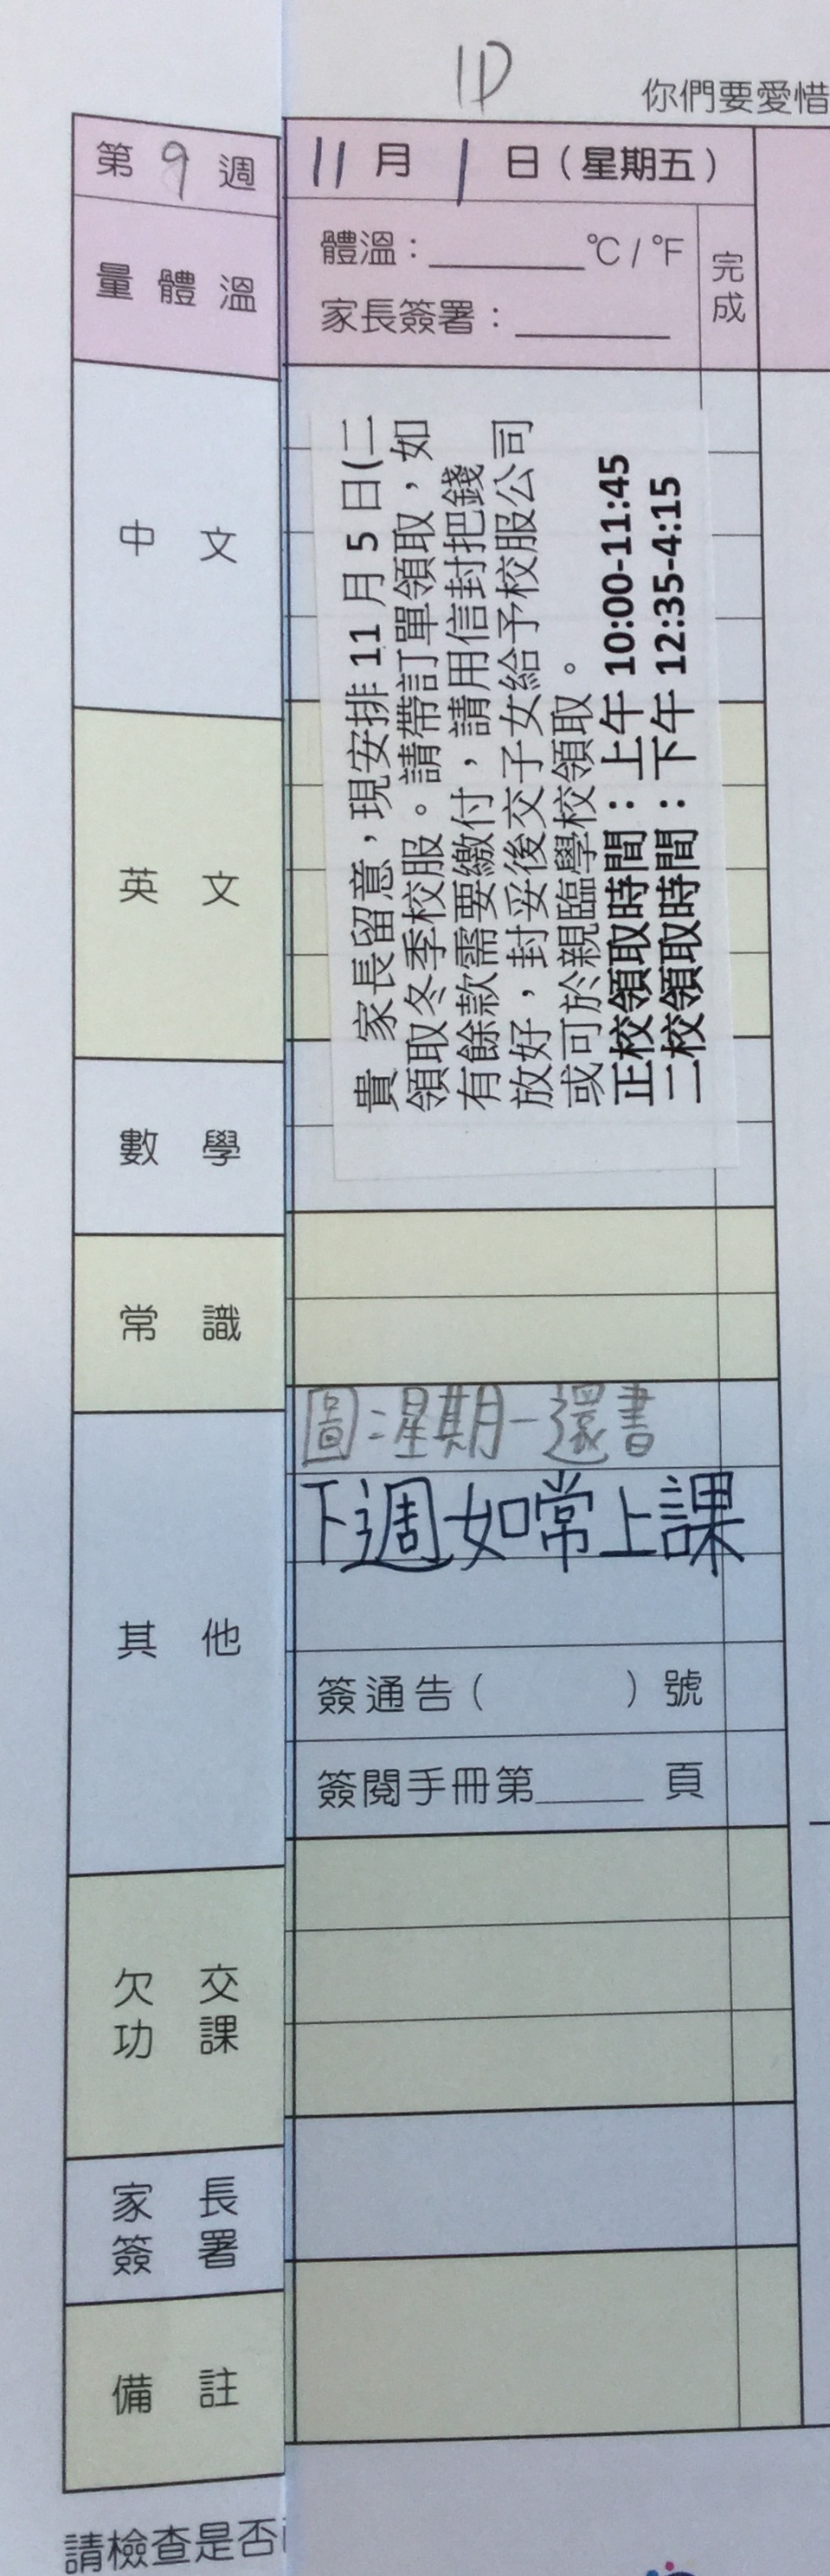 1D
你們要愛惜
第 9 週
11 月 1 日 (星期五)
量體溫
體溫：______°C / °F
家長簽署：______
完成
中文
貴 家長留意，現安排 11 月 5 日(二
領取冬季校服。請帶訂單領取，如
有餘款需要繳付，請用信封把錢
放好，封妥後交子女給予校服公司
或可於親臨學校領取。
正校領取時間：上午 10:00-11:45
二校領取時間：下午 12:35-4:15
英文
數學
常識
其他
圖:星期一還書
下週如常上課
簽通告( )號
簽閱手冊第____頁
欠交
功課
家長
簽署
備註
請檢查是否